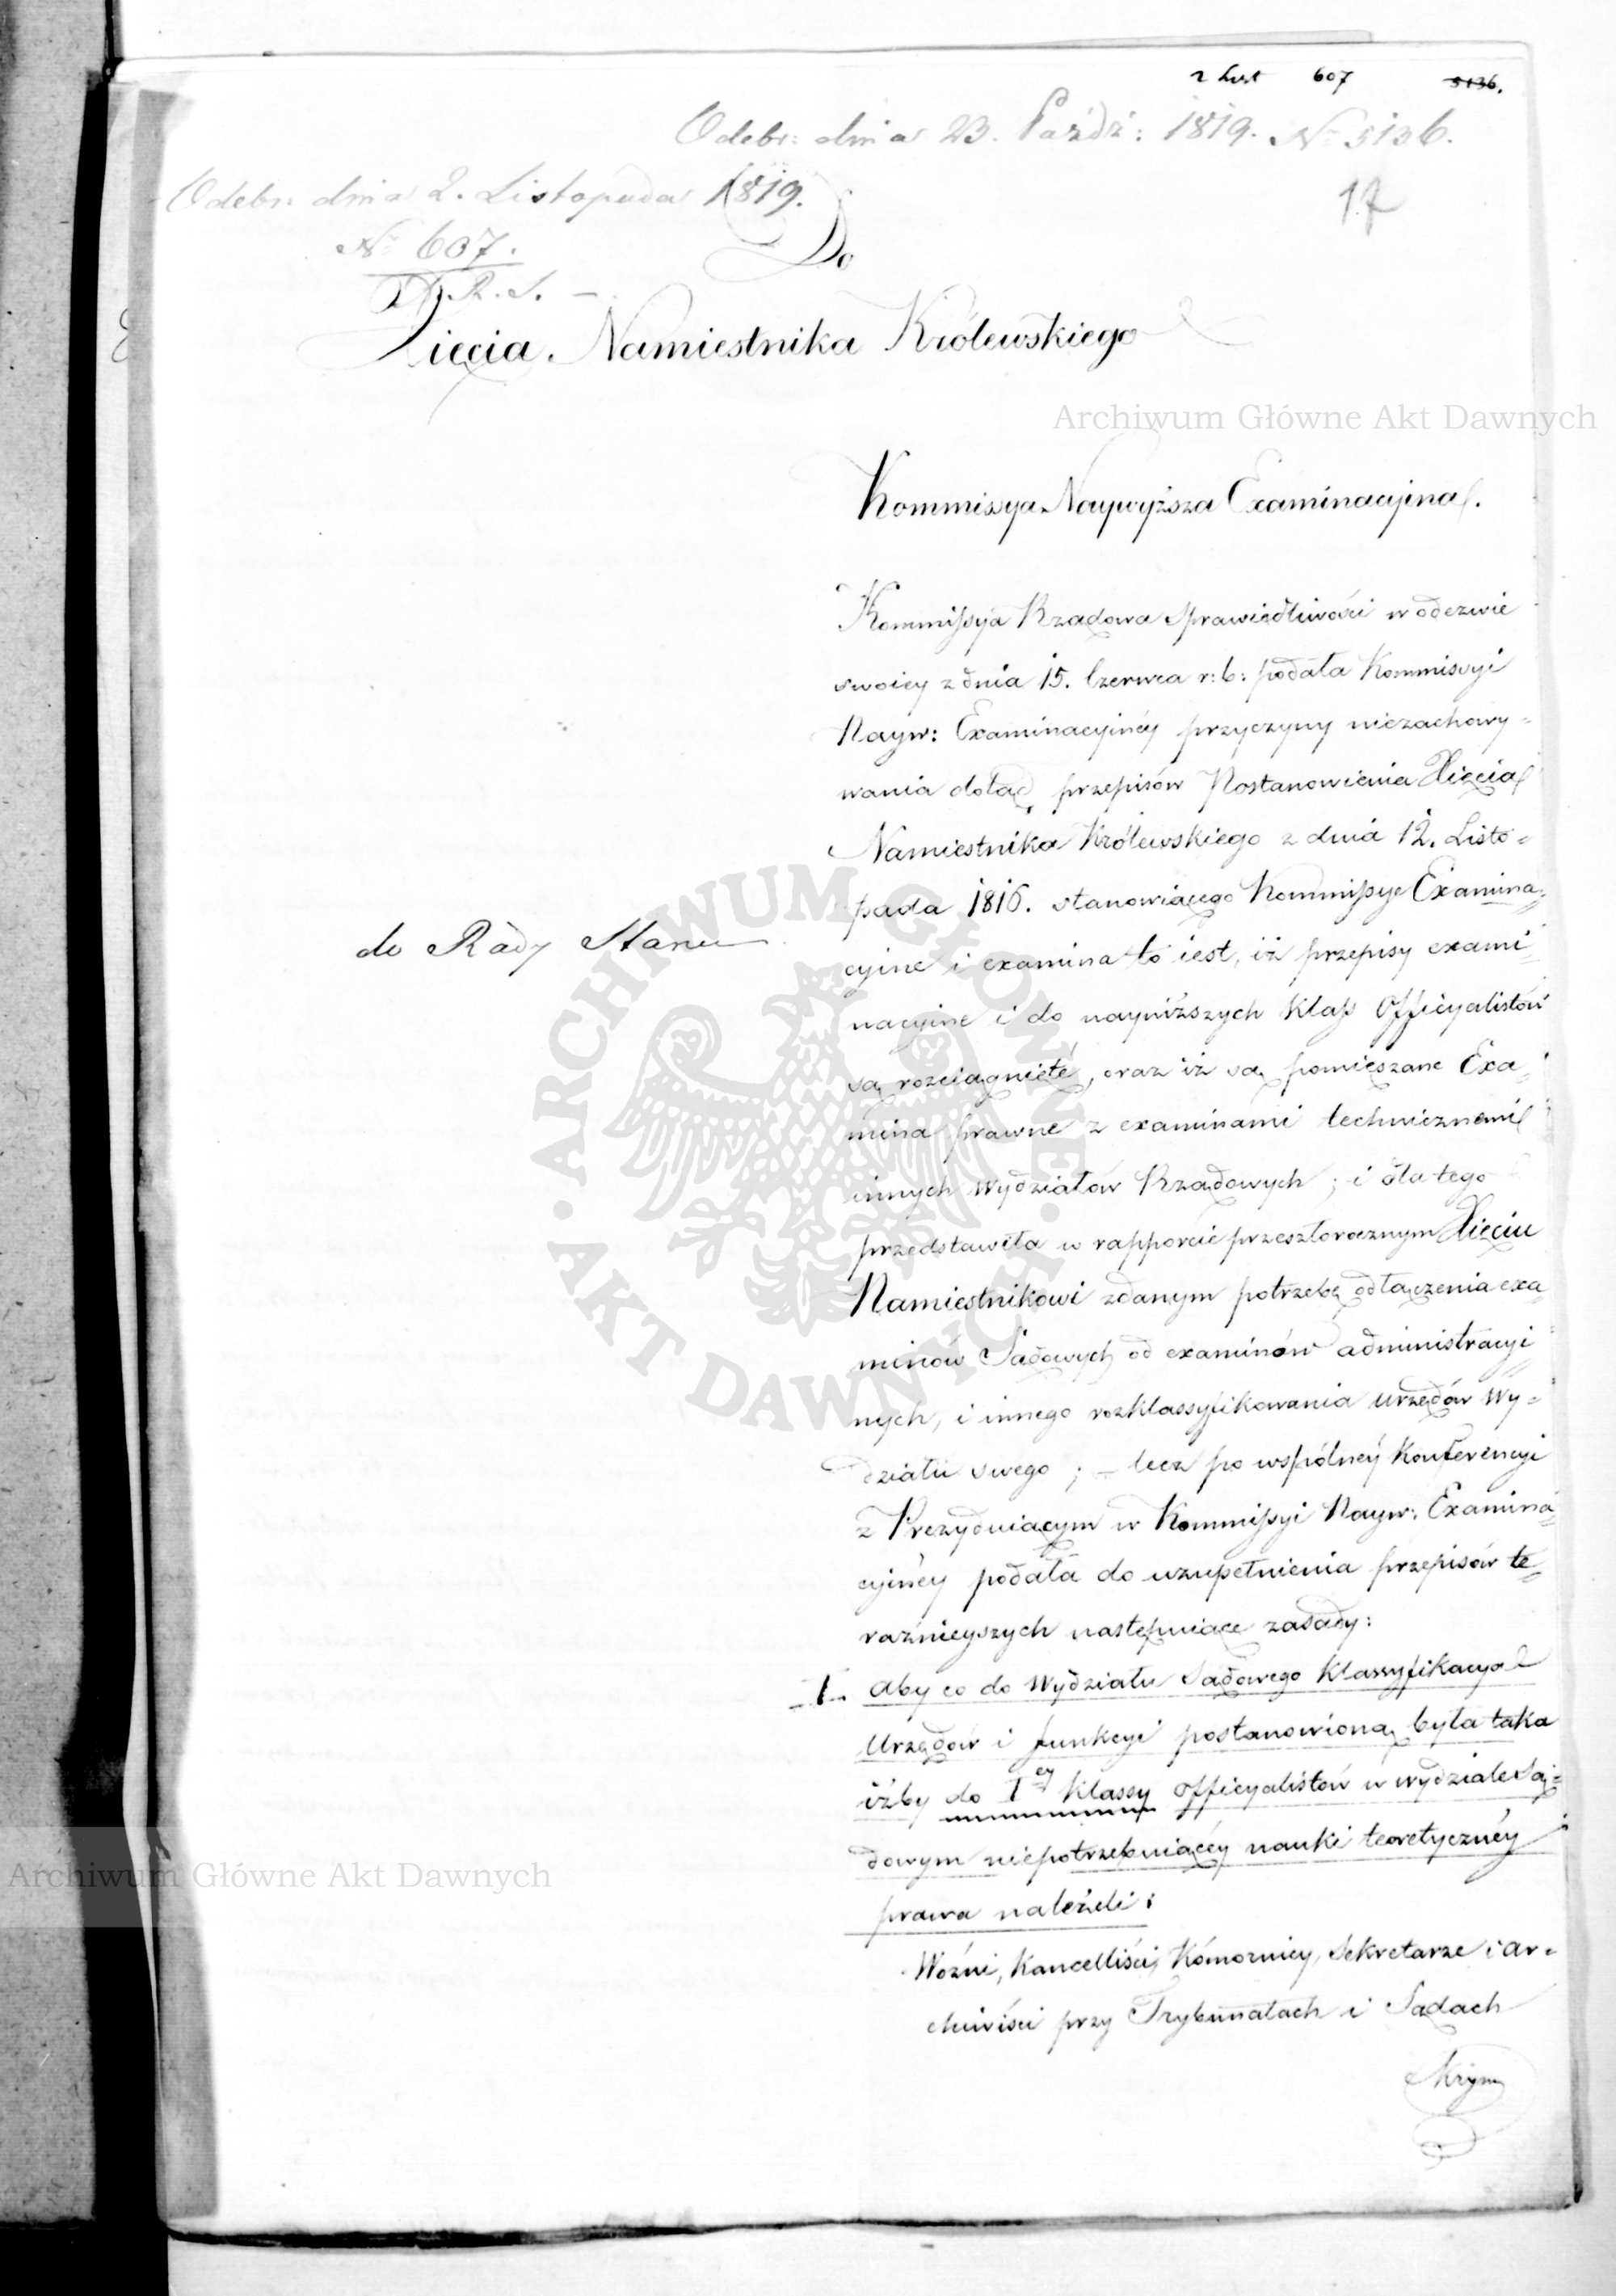 2 List 607 5136.
Odebr: dnia 23. Paźdź: 1819. No 5136.
Odebr: dnia 2. Listopada 1819.
17
No 607.
R. S. —
Do
Xięcia Namiestnika Królewskiego
Archiwum Główne Akt Dawnych
Kommissya Naywyższa Examinacyjna.
Kommissya Rządowa Sprawiedliwości w odezwie
swoiey z dnia 15. Czerwca r: b: podała Kommissyi
Nayw: Examinacyjnéy przyczyny niezachowy=
wania dotąd przepisów Postanowienia Xięcia
Namiestnika Królewskiego z dnia 12. Listo=
pada 1816. stanowiącego Kommissye Examina=
do Rady Stanu
cyine i examina to iest, iż przepisy exami=
nacyine i do nayniższych klass Officyalistów
są rozciągnięté, oraz iż są pomięszane Exa=
mina prawne z examinami technicznemi
innych Wydziałów Rządowych; i dla tego
przedstawiła w rapporcie przeszłorocznym Xięciu
Namiestnikowi zdanym potrzebę odłączenia exa=
minów Sądowych od examinów administracyi=
nych, i innego rozklassyfikowania urzędów Wy=
działu swego; — lecz po wspólnéy Konferencyi
z Prezyduiącym w Kommissyi Nayw: Examina=
cyinéy podała do uzupełnienia przepisów te=
raźnieyszych następuiące zasady:
1. Aby co do Wydziału Sądowego Klassyfikacya
Urzędów i funkcyi postanowioną była taka
iżby do I ey Klassy Officyalistów w wydziale Są=
dowym niepotrzebuiącéy nauki teoretycznéy
prawa należeli:
Archiwum Główne Akt Dawnych
Woźni, Kancelliści, Kómornicy, Sekretarze i ar=
chiwiści przy Trybunałach i Sądach
ARCHIWUM GŁÓWNE AKT DAWNYCH